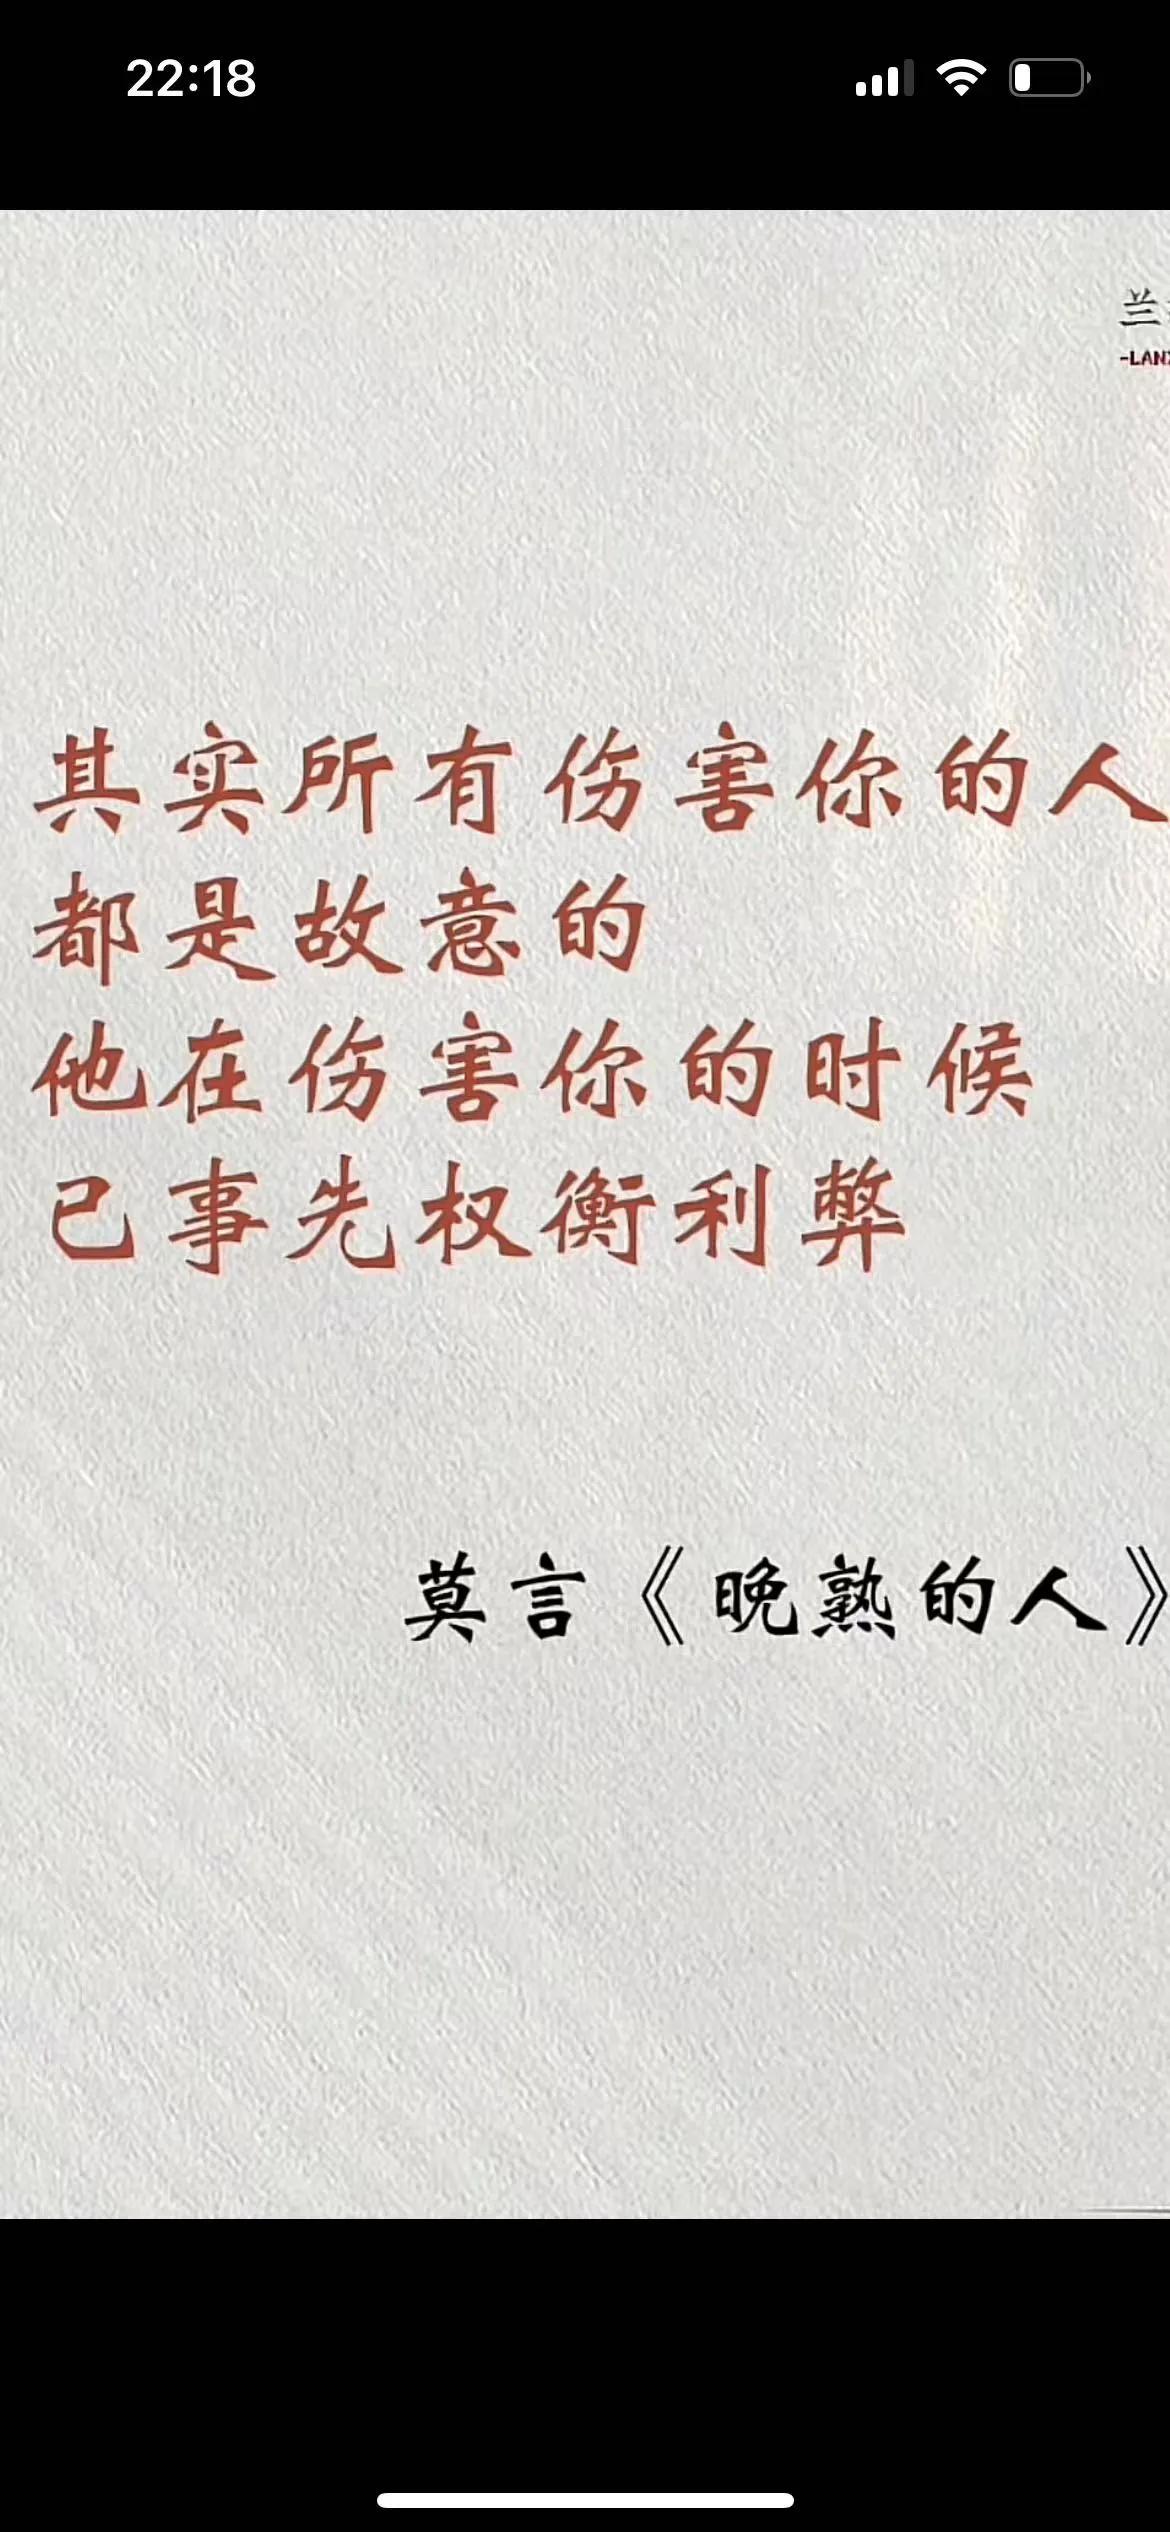 22:18
兰
-LAN
其实所有伤害你的人
都是故意的
他在伤害你的时候
已事先权衡利弊
莫言《晚熟的人》